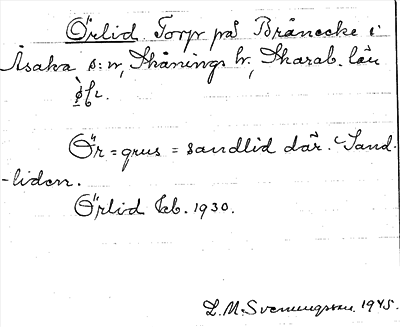 Örlid Torp på Brånecke i
Åsaka s:n, Skånings hr, Skarab. län
Ör = grus = sandlid där. Sand-
-liden.
Örlid Jub. 1930.
L. M. Svenungsson. 1945.